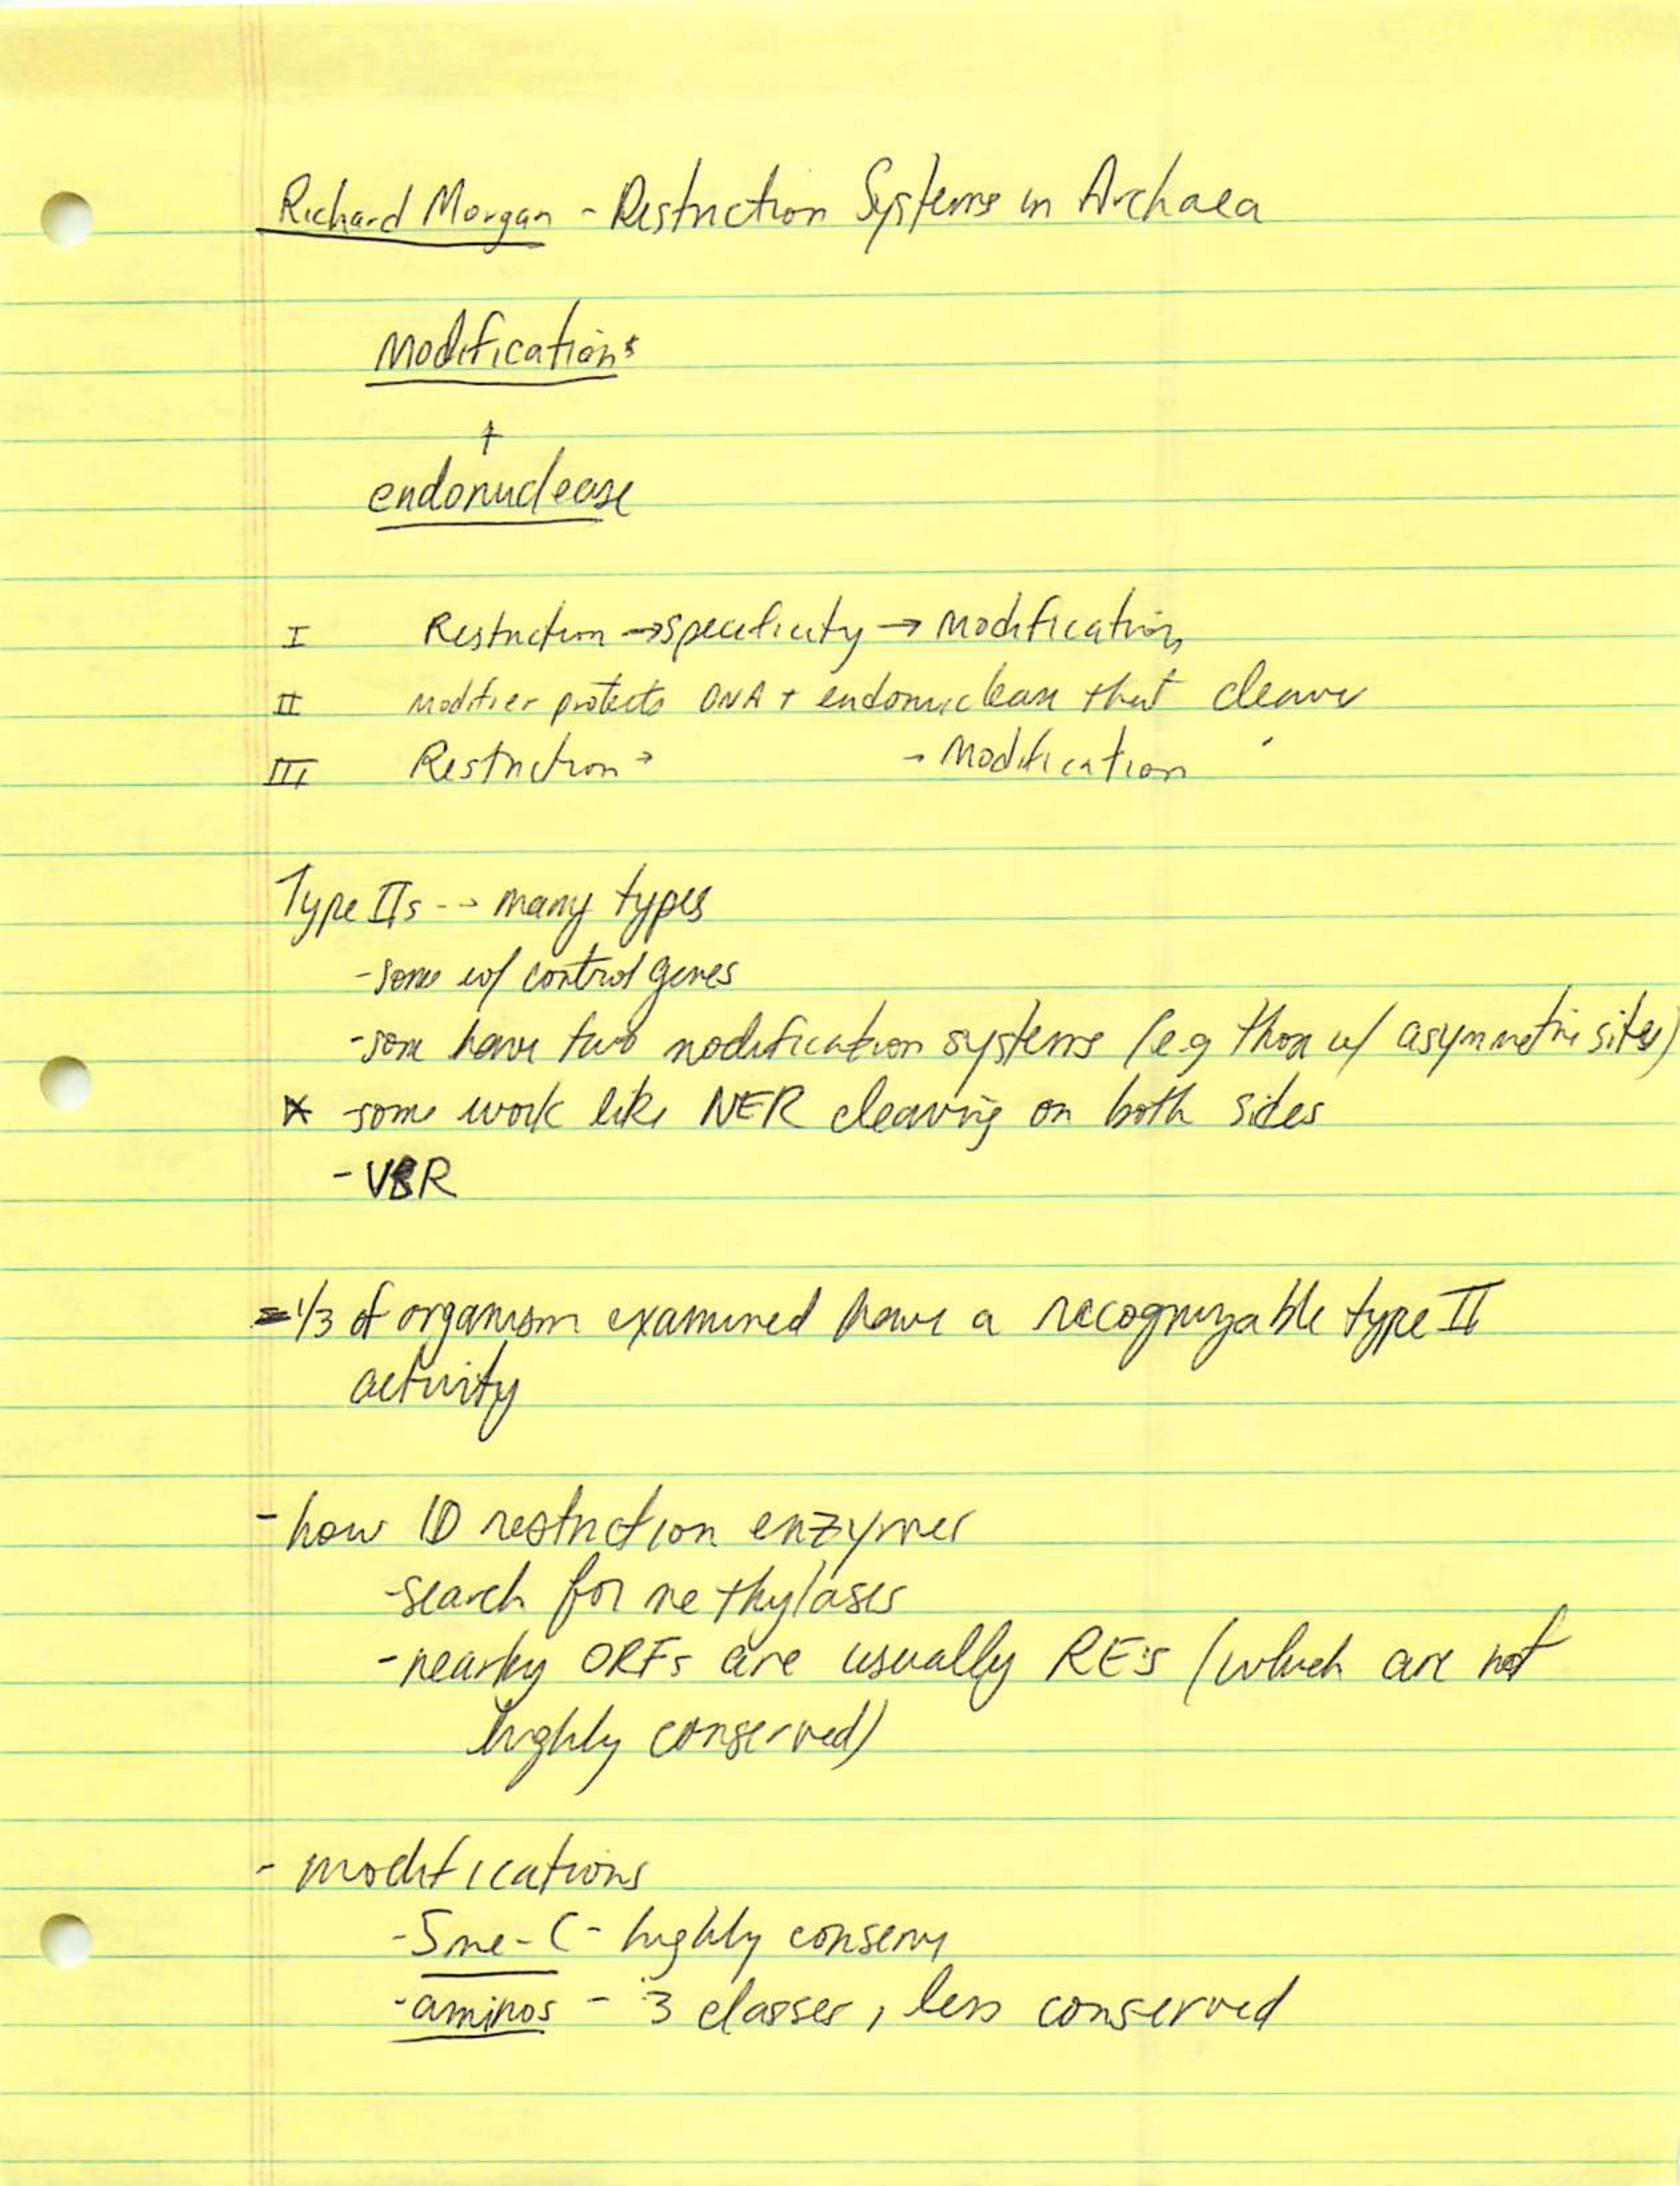 Richard Morgan - Restriction Systems in Archaea
Modifications
+
endonuclease
I Restriction → specificity → Modification
II Modifier protects DNA + endonuclease that cleaves
III Restriction → → Modification
Type IIs -→ many types
- some w/ control genes
- some have two modification systems (e.g. those w/ asymmetric sites)
* some work like NER cleaving on both sides
- VSR
- 1/3 of organism examined have a recognizable type II
activity
- how ID restriction enzymes
- search for methylases
- nearby ORFs are usually RE's (which are not
highly conserved)
- modifications
- 5me-C - highly conserv
- aminos - 3 classes, less conserved